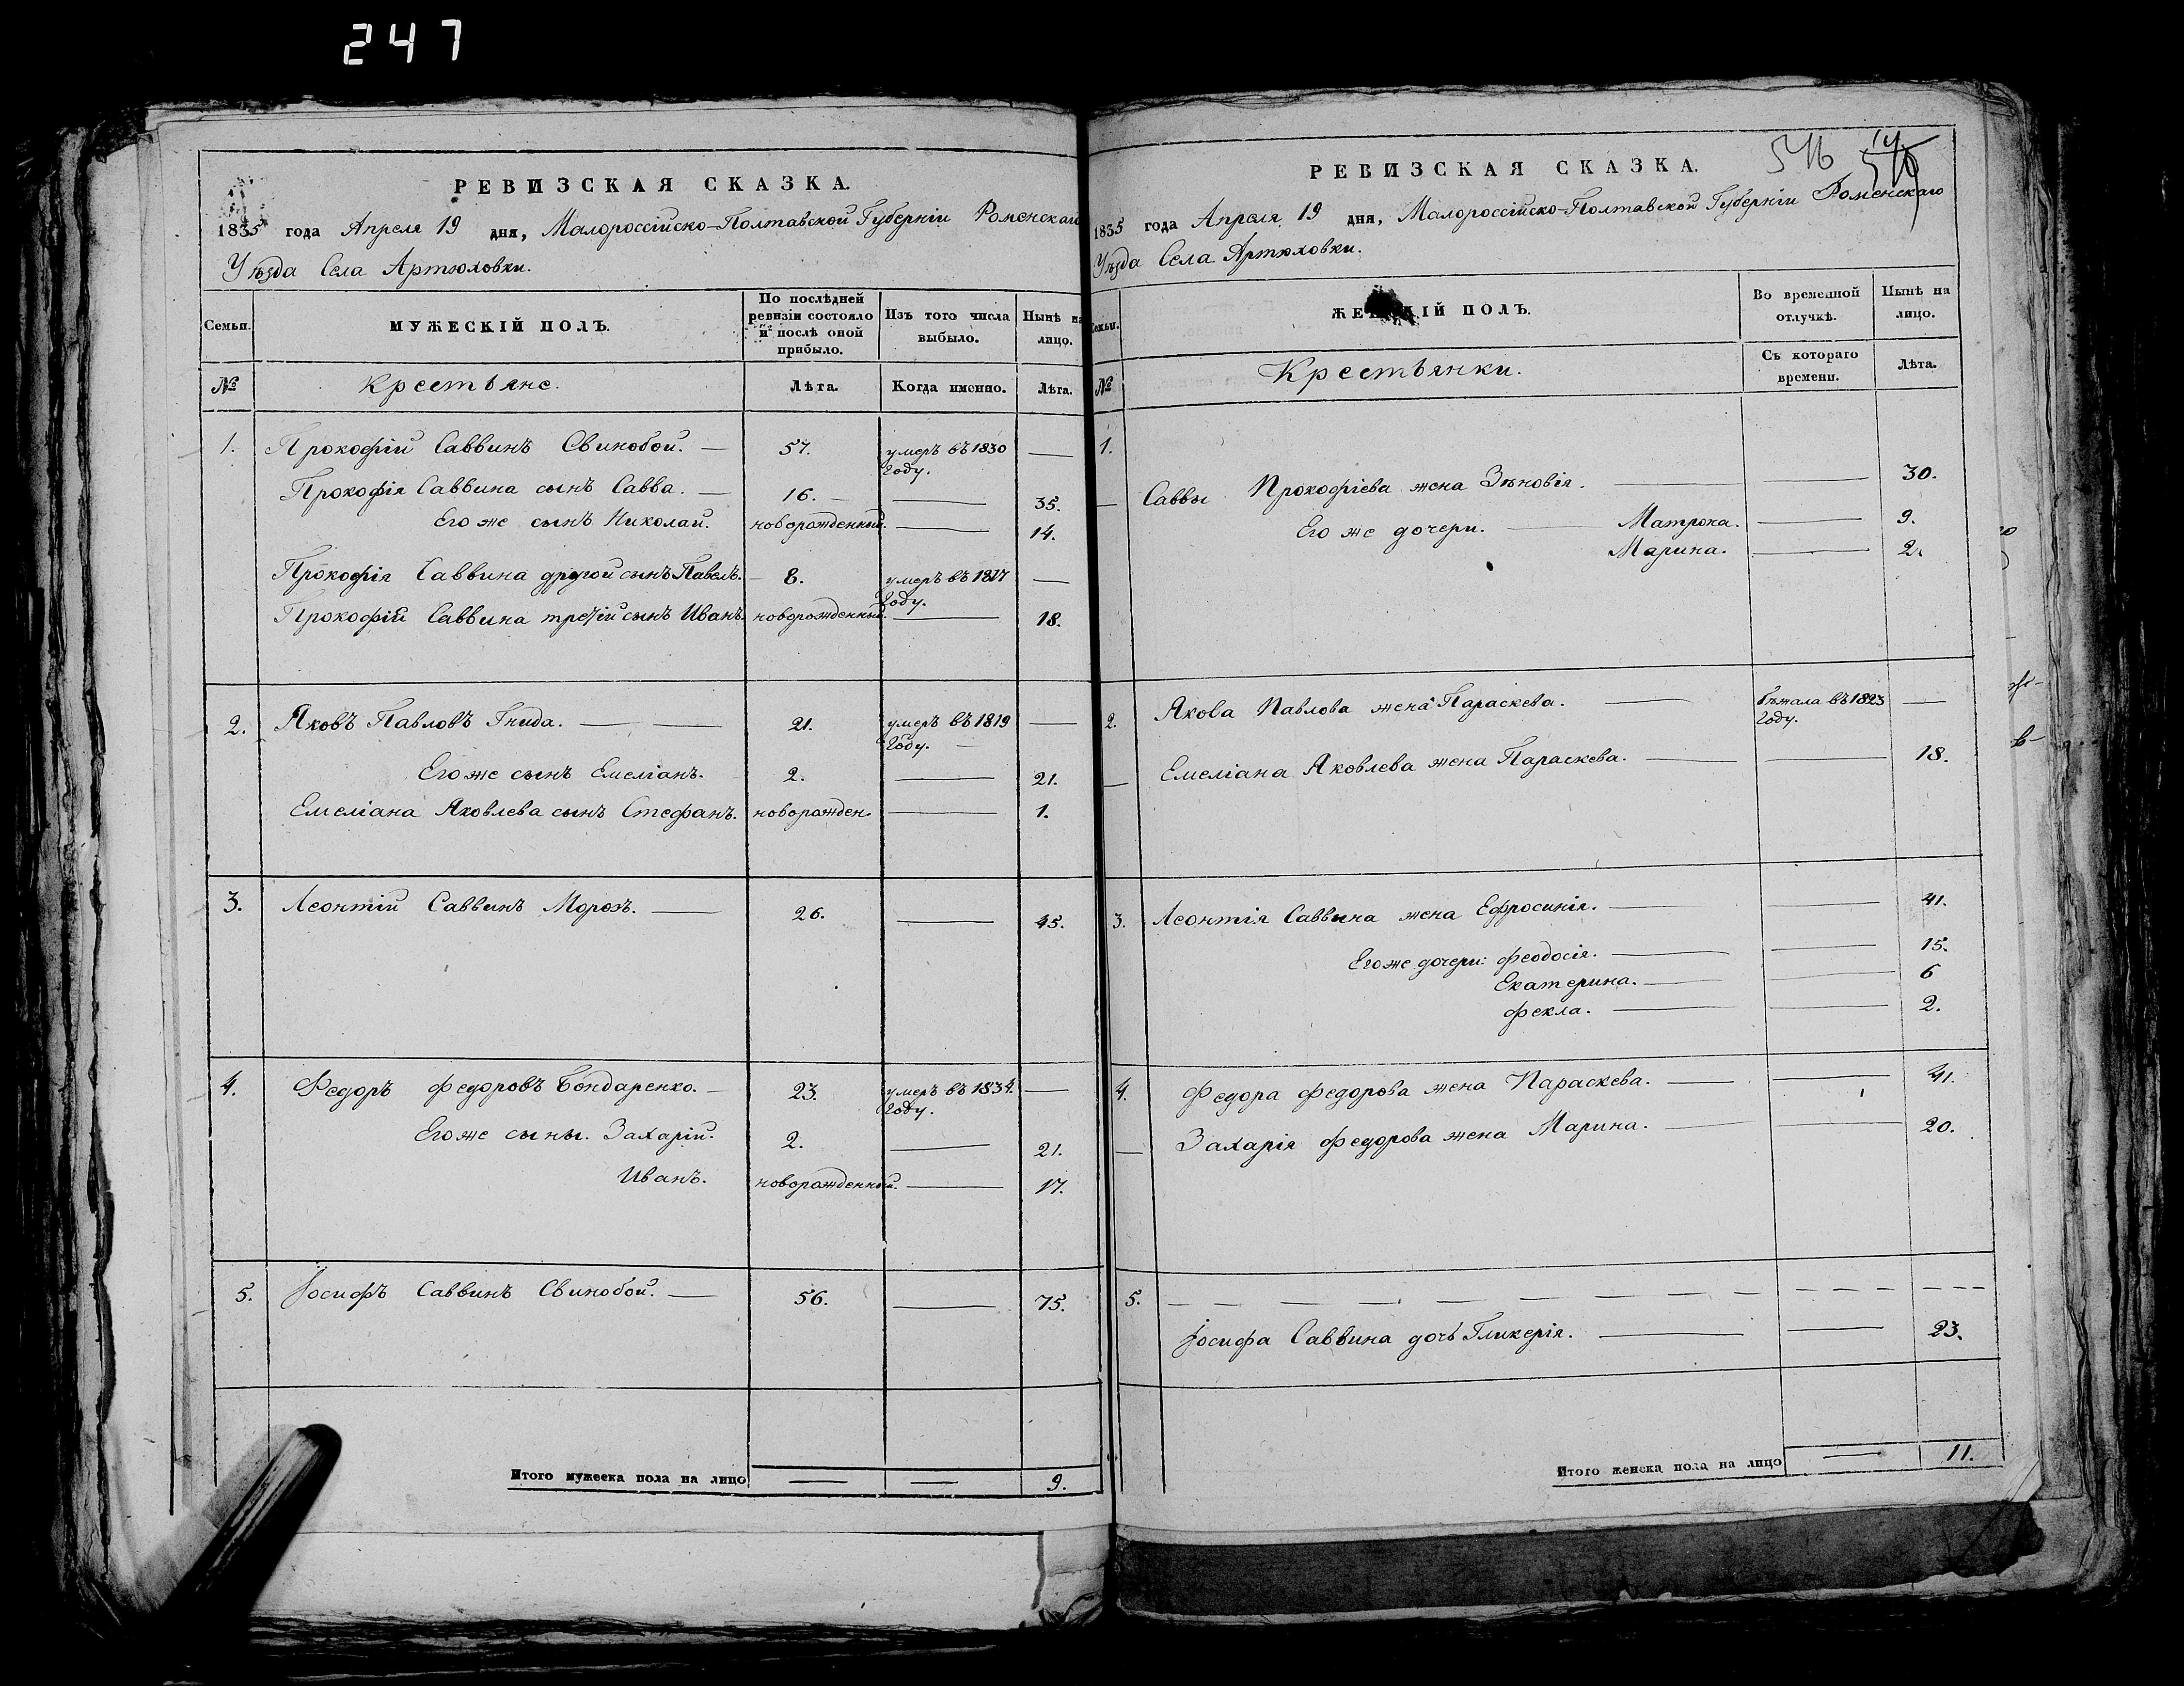 247
РЕВИЗСКАЯ СКАЗКА.
1835 года Апреля 19 дня, Малороссійско-Полтавской Губерніи Роменскаго
Уѣзда Села Артюховки.
Семьи. МУЖЕСКІЙ ПОЛЪ. По послѣдней ревизіи состояло и послѣ оной прибыло. Изъ того числа выбыло. Нынѣ на лицо.
№ Крестьяне. Лѣта. Когда именно. Лѣта.
1. Прокофій Саввинъ Свинобой. — 57. умеръ въ 1830 году. —
Прокофія Саввина сынъ Савва. — 16. — — 35.
Его же сынъ Николай. новорожденный. — 14.
Прокофія Саввина другой сынъ Павелъ. — 8. умеръ въ 1827 году. —
Прокофій Саввина третій сынъ Иванъ. новорожденный. — 18.
2. Яковъ Павловъ Гнида. — — 21. умеръ въ 1819 году. — —
Его же сынъ Емеліанъ. 2. — 21.
Емеліана Яковлева сынъ Стефанъ. новорожден. — 1.
3. Леонтій Саввинъ Морозъ. — 26. — 45.
4. Федоръ Федоровъ Бондаренко. — 23. умеръ въ 1834. году. —
Его же сыны. Захарій. 2. — 21.
Иванъ. новорожденный. — 17.
5. Іосифъ Саввинъ Свинобой. — 56. — 75.
Итого мужеска пола на лицо — — 9.
516
РЕВИЗСКАЯ СКАЗКА.
1835 года Апреля 19 дня, Малороссійско-Полтавской Губерніи Роменскаго
Уѣзда Села Артюховки.
Семьи. ЖЕНСКІЙ ПОЛЪ. Во временной отлучкѣ. Нынѣ на лицо.
№ Крестьянки. Съ котораго времени. Лѣта.
1.
— Саввы Прокофіева жена Зѣновія. — — 30.
Его же дочери. — Матрона. — 9.
Марина. — 2.
2. Якова Павлова жена Параскева. — бѣжала въ 1823 году. —
— Емеліана Яковлева жена Параскева. — — 18.
3. Леонтія Саввина жена Ефросинія. — — 41.
Его же дочери: Феодосія. — — 15.
Екатерина. — — 6
Фекла. — — 2.
4. Федора Федорова жена Параскева. — — 41.
— Захарія Федорова жена Марина. — — 20.
5. — — — — — — — — — — — —
Іосифа Саввина дочь Гликерія. — — 23.
Итого женска пола на лицо — 11.